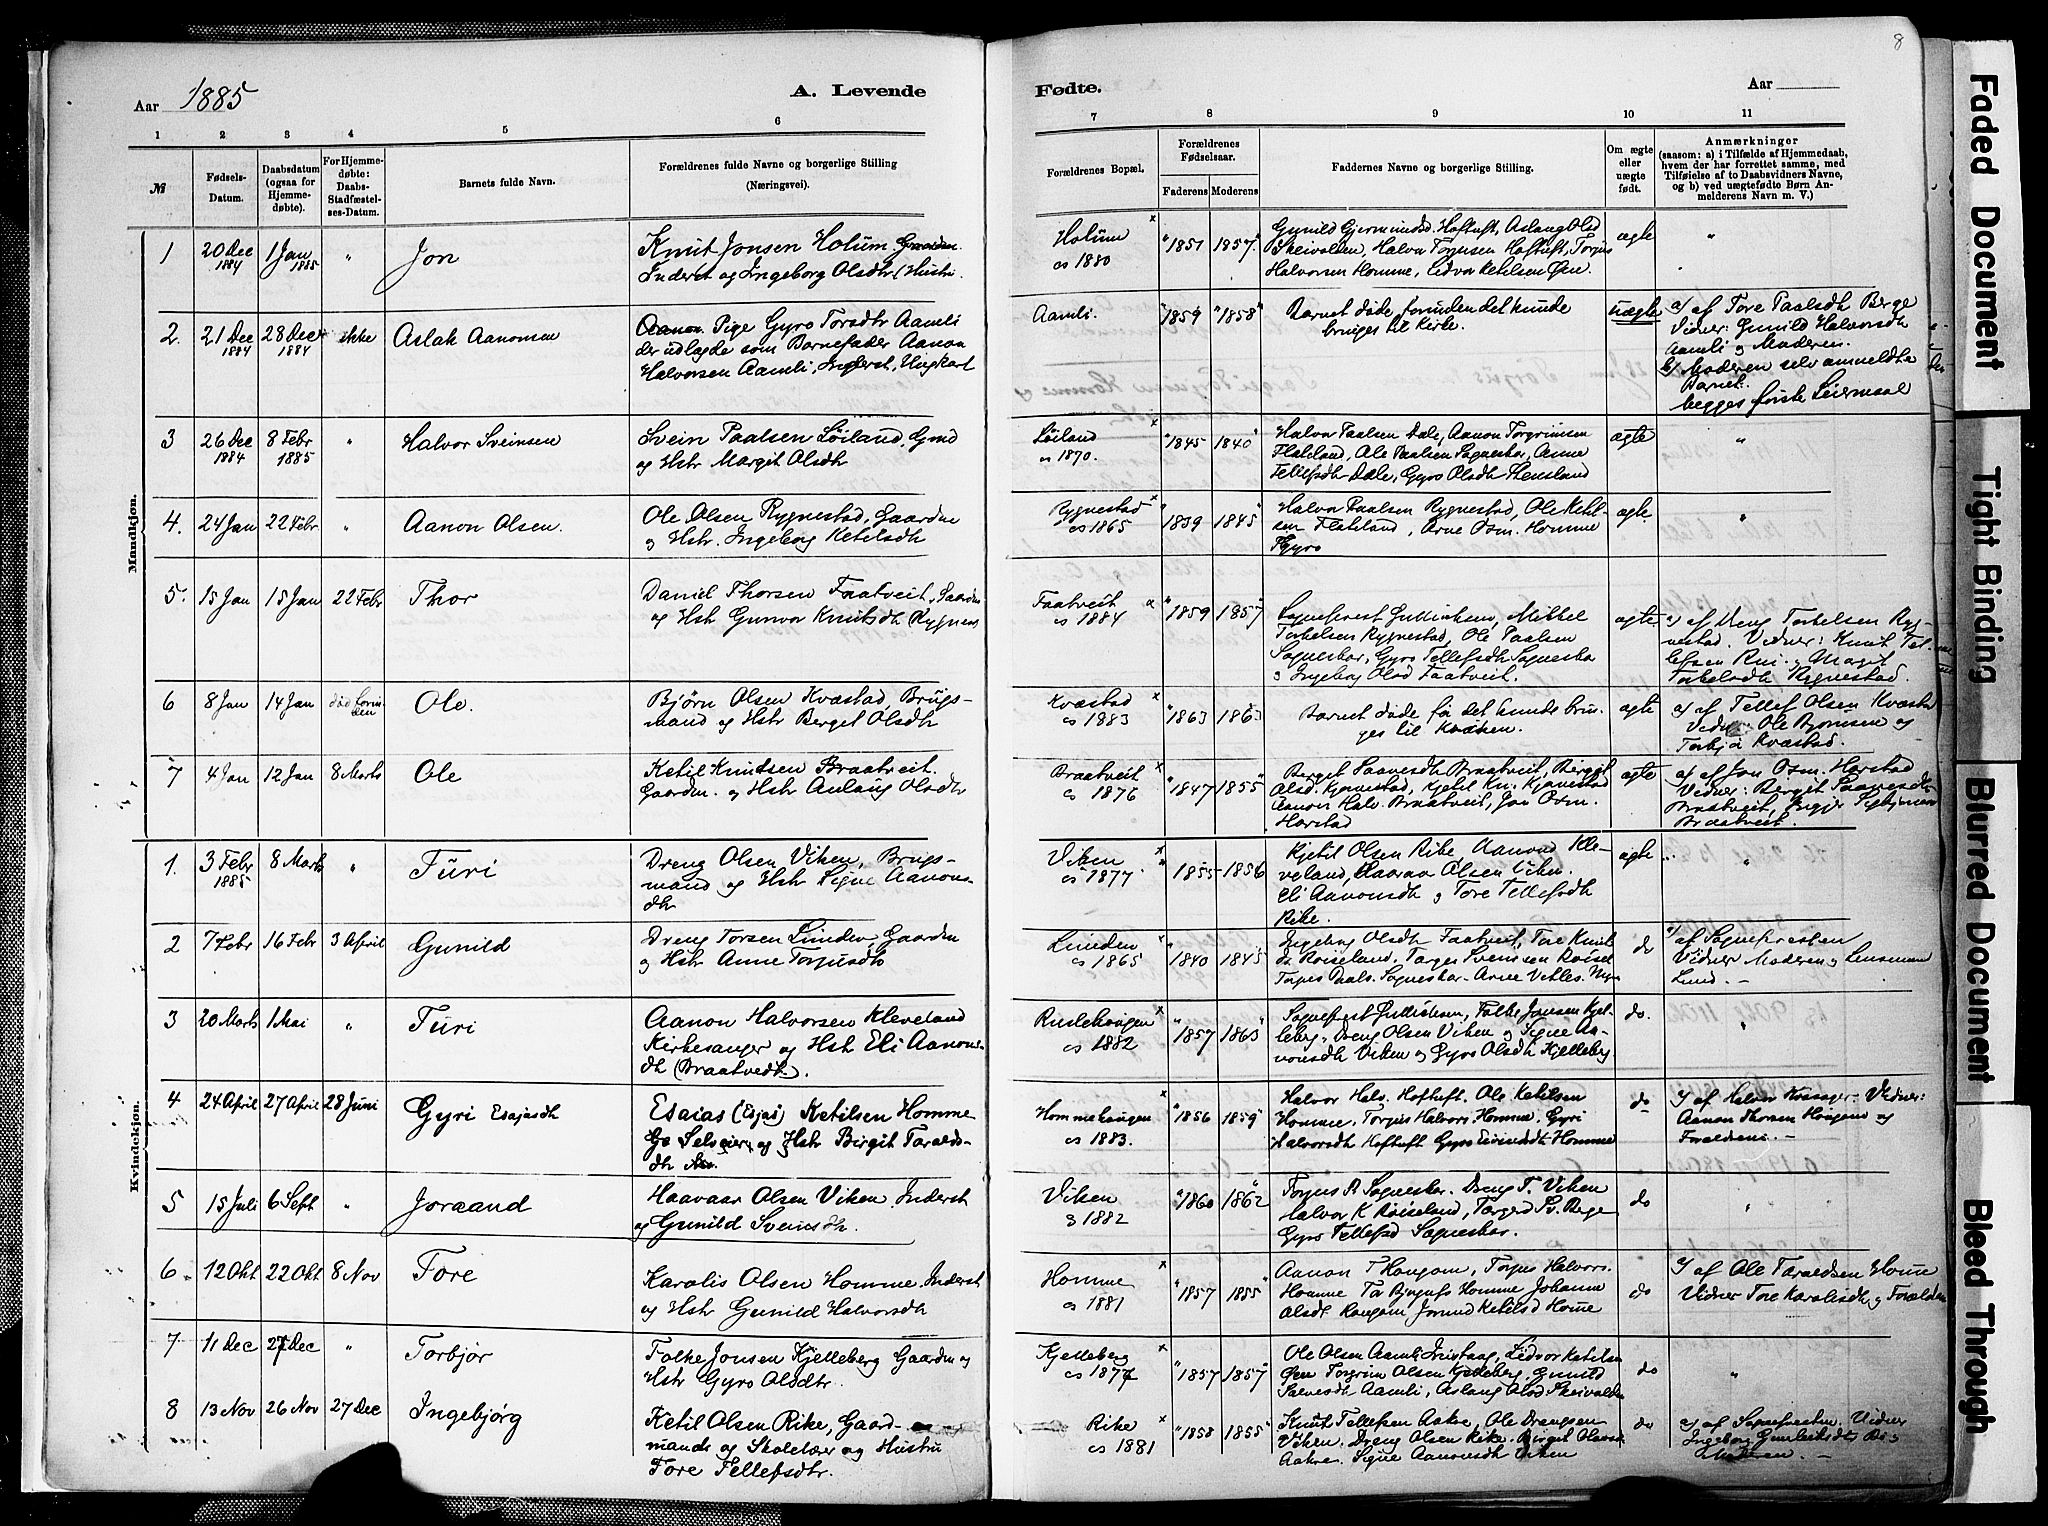 8
Aar 1885
A. Levende
Fødte.
Aar
1 2 3 4 5 6 7 8 9 10 11
№
Fødsels-
Datum.
Daabsdatum
(ogsaa for
Hjemme-
døbte).
For Hjemme-
døbte:
Daabs-
Stadfæstel-
ses-Datum.
Barnets fulde Navn.
Forældrenes fulde Navne og borgerlige Stilling
(Næringsvei).
Forældrenes Bopæl.
Forældrenes
Fødselsaar.
Faderens Moderens
Faddernes Navne og borgerlige Stilling.
Om ægte
eller
uægte
født.
Anmærkninger
(saasom: a) i Tilfælde af Hjemmedaab,
hvem der har forrettet samme, med
Tilføielse af to Daabsvidners Navne,
og b) ved uægtefødte Børn An-
melderens Navn m. V.)
Mandkjøn.
1 20 Dec 1884 1 Jan 1885 " Jon
Knut Jonsen Holum. Gaardm.
Inderst og Ingeborg Olsdtr (Hustr.
Holum cs 1880 1851 1857
Gunild Gjermundsd. Hoftuft, Aslaug Olsd
Skeivalden, Halvor Torjusen Hoftuft, Torjus
Halvorsen Homme, Lidvor Ketilsen Øen.
ægte "
2. 21 Dec 1884 28 Dec 1884 ikke Aslak Aanonsen
Pige Gyro Torsdtr Aamli
der udlagde som Barnefader Aanon
Halvorsen Aamli, Inderst, Ungkarl
Aamli. 1859 1858
Barnet døde forinden det kunde
bringes til Kirke.
uægte
a) af Tore Paalsdtr Berge
Vidner: Gunild Halvorsdtr
Aamli og Moderen.
b) Moderen selv anmeldte
Barnet.
begges første Leiermaal
3 26 Dec 1884 8 Febr 1885 " Halvor Sveinsen
Svein Paalsen Løiland, Gmd
og Hstr Margit Olsdtr
Løiland cs 1870. 1845 1840
Halvor Paalsen Dale, Aanon Torgrimsen
Flateland, Ole Paalsen Sagneskar, Anne
Tellefsdtr Dale, Gyro Olsdtr Stensland
ægte "
4. 24 Jan 22 Febr " Aanon Olsen.
Ole Olsen Rygnestad, Gaardm
og Hstr. Ingeborg Ketilsdtr
Rygnestad cs 1865 1839 1845
Halvor Paalsen Rygnestad, Ole Ketil-
sen Flateland, Arne Osm. Homme
Gyro
ægte. "
5. 15 Jan 15 Jan 22 Febr Thor
Daniel Thorsen Faatveit, Gaardm
og Hstr Gunvor Knutsdtr Rygnes
Faatveit cs 1884 1859 1857
Sogneprest Gullichsen, Mikkel
Torkelsen Rygnestad, Ole Paalsen
Sagneskar, Gyro Tellefsdtr Sagneskar
og Ingeborg Olsd Faatveit.
ægte
a) af Dreng Torkelsen Ryg-
nestad. Vidner: Knut Tel-
lefsen Rui og Margit
Torkelsdtr Rygnestad.
6 8 Jan 14 Jan død forin-
den Ole.
Bjørn Olsen Kvæstad, Brugs-
mand og Hstr Berget Olsdtr
Kvæstad cs 1883 1863 1863
Barnet døde før det kunde brin-
ges til Kirken.
ægte
a) af Tellef Olsen Kvæstad
Vidner: Ole Bjørnsen og
Torbjør Kvæstad.
7 4 Jan 12 Jan 8 Marts Ole
Ketil Knudsen Braatveit.
Gaardm. og Hstr Aslaug Olsdtr
Braatveit cs 1876 1847 1855
Berget Saavesdtr Braatveit, Bergit
Olsd. Kjævestad, Kjetil Kn. Kjævestad
Aanon Halv. Braatveit, Jon Osm.
Harstad
ægte
a) af Jon Osm. Harstad
Vidner: Bergit Saavesdtr
Braatveit, Ingjer
Braatveit.
Kvindekjøn.
1. 3 Febr 1885 8 Marts " Turi
Dreng Olsen Viken, Brugs-
mand og Hstr Signe Aanons-
dtr
Viken cs 1877 1855 1856
Kjetil Olsen Rike, Aanond Kle-
veland, Haavar Olsen Viken.
Eli Aanonsdtr og Tore Tellefsdtr
Rike.
ægte "
2 7 Febr 16 Febr 3 April Gunild
Dreng Torsen Lunden Gaardm
og Hstr Anne Torjusdtr
Lunden cs 1865 1840 1845
Ingeborg Olsdtr Faatveit, Tore Knut
ds Røiseland, Targei Sveinsen Røisel
Torjus Paals. Sagneskar. Arne Vetles.
do
a) af Sognepresten
Vidner Moderen og Lensmand
Lund. -
3 20 Marts 1 Mai " Turi
Aanon Halvorsen Kleveland
Kirkesanger og Hstr Eli Aanons-
dtr (Braatvedt).
Rustehougen cs 1882 1857 1863
Sogneprest Gullichsen, Folke Jonsen Kjel-
leberg, Dreng Olsen Viken og Signe Aa-
nonsdtr Viken og Gyro Olsdtr Kjelleberg
do. "
4 24 April 27 April 28 Juni Gyri Esajasdtr
Esaias (Esjas) Ketilsen Homme
Selveier og Hstr Birgit Taralds-
dtr
Hommehaugen cs 1883. 1856 1859
Halvor Hals. Hoftuft. Ole Ketilsen
Homme, Torjus Halvors Homme. Gyri
Halvorsdtr Hoftuft Gyro Eivindsdtr Homme
do
a) af Halvor Vidner:
Aanon Thorsen Hougom og
Forældrene. -
5 15 Juli 6 Sept " Joraand
Haavaar Olsen Viken Inderst
og Gunild Sveinsdtr.
Viken cs 1882 1860 1862
Torjus P. Sagneskar. Dreng T. Viken
Halvor K Røiseland, Targerd Sv. Berge
Gyro Tellefsd Sagneskar.
do "
6. 12 Okt 22 Okt 8 Nov Tore
Karolis Olsen Homme, Inderst
og Hstr Gunild Halvorsdtr
Homme cs 1881 1857 1855
Aanon T Hougom, Torjus Halvors.
Homme Ta Bjugufs Homme Johanne
Olsdt. Hougom Jorund Ketilsd Home
do
a) af Ole Taraldsen Home
Vidner Tore Karolisdtr og Forældre
7 11 Dec 27 Dec " Torbjør
Folke Jonsen Kjelleberg Gaardm og
Hstr Gyro Olsdtr.
Kjelleberg cs 1877 1857 1857
Ole Olsen Aamli Lidvor Ketilsen
Øen Torgrim Olsen Kjelleberg, Gunild
Salvesdtr Aamli, Aslaug Olsd Skeivalden
do "
8 13 Nov 26 Nov 27 Dec Ingebjørg
Ketil Olsen Rike, Gaard-
mands og Skolelær og Hustru
Tore Tellefsdtr.
Rike cs 1881 1858 1855
Knut Tellefsen Aakre, Ole Drengsen
Viken. Dreng Olsen Rike. Birgit Olavsd.
Aakre. Signe Aanonsdtr Viken
do
a) af Sognepresten. Vidner
Ingeborg Gunleiksdtr og
Moderen. -
Faded Document
Tight Binding
Blurred Document
Bleed Through